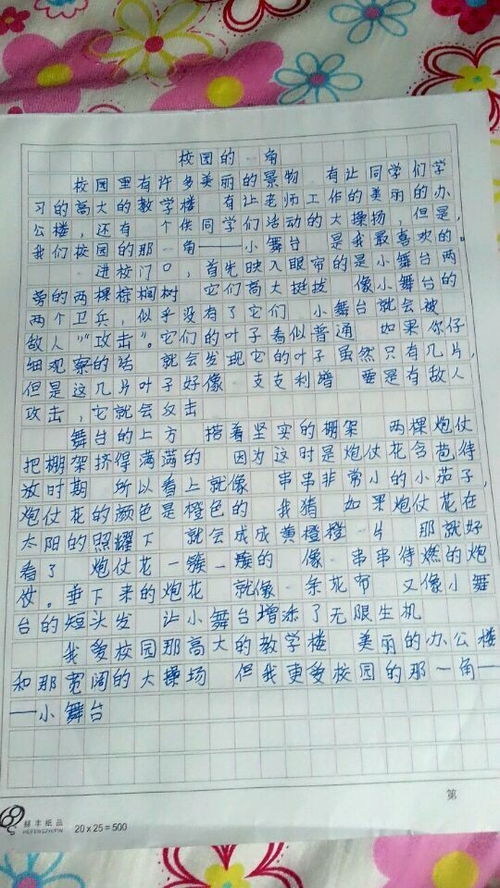 校园的一角
校园里有许多美丽的景物 有让同学们学
习的高大的教学楼 有让老师工作的美丽的办
公楼，还有一个供同学们活动的大操场，但是，
我们校园的那一角——小舞台 是我最喜欢的。
一进校门口，首先映入眼帘的是小舞台两
旁的两棵棕榈树 它们高大挺拔 像小舞台的
两个卫兵，似乎没有了它们 小舞台就会被
敌人"攻击"。它们的叶子看似普通 如果你仔
细观察的话 就会发现它的叶子虽然只有几片，
但是这几片叶子好像一支支利 要是有敌人
攻击，它就会反击
舞台的上方 搭着坚实的棚架 两棵炮仗
把棚架挤得满满的 因为这时是炮仗花含苞待
放时期 所以看上就像一串串非常小的小茄子，
炮仗花的颜色是橙色的 我猜 如果炮仗花在
太阳的照耀下 就会成成黄橙橙一片 那就好
看了 炮仗花一簇一簇的 像一串串待燃的炮
仗。垂下来的炮花 就像一条花布 又像小舞
台的短头发 让小舞台增添了无限生机
我爱校园那高大的教学楼 美丽的办公楼
和那宽阔的大操场 但我更爱校园的那一角—
—小舞台
第
20×25=500